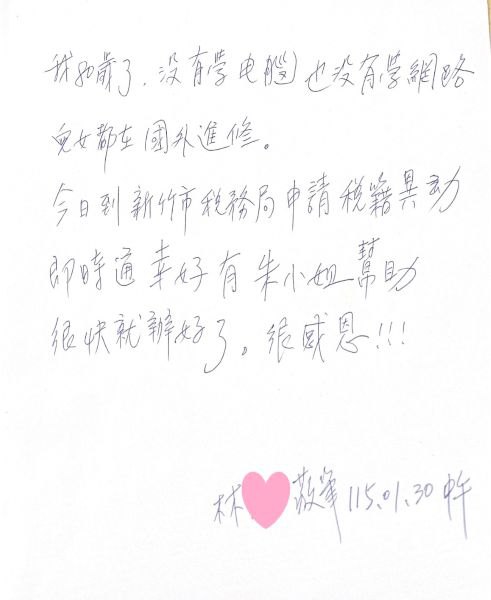 我80歲了.沒有學电腦也沒有學網路
兒女都在國外進修。
今日到新竹市稅務局申請稅籍異动
即時通幸好有朱小姐幫助
很快就辦好了。很感恩!!!
林 敬筆 115.01.30 中午